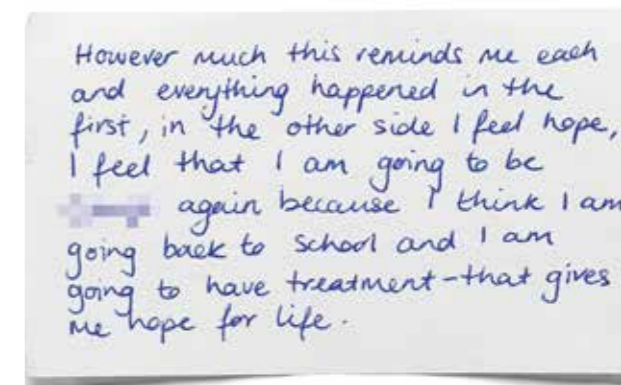 However much this reminds me each
and everything happened in the
first, in the other side I feel hope,
I feel that I am going to be
again because I think I am
going back to school and I am
going to have treatment-that gives
me hope for life.